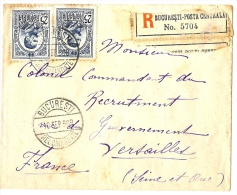 25 25
R BUCUREȘTI-POSTA CENTRALA
No. 5704
Monsieur
Colonel Commandant du
Recrutment
Gouvernement
Versailles
(Seine et Oise)
France
BUCUREȘTI